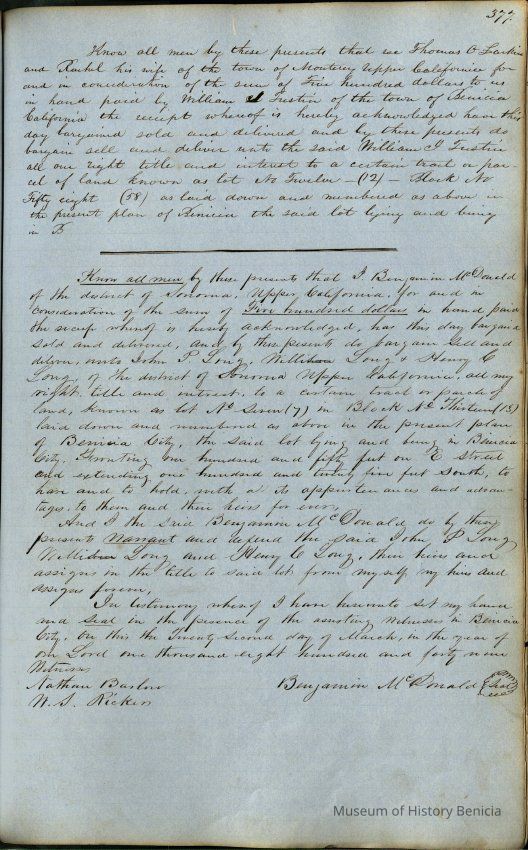 377.
Know all men by these presents that we Thomas O Larkin
and Rachel his wife of the town of Monterey Upper California for
and in consideration of the sum of Five hundred dollars to us
in hand paid by William I Tustin of the town of Benicia
California the receipt whereof is hereby acknowledged have this
day bargained sold and delivered and by these presents do
bargain sell and deliver unto the said William I Tustin
all our right title and interest to a certain tract or par-
cel of land known as lot No Twelve - (12) - Block No
Fifty eight (58) as laid down and numbered as above in
the present plan of Benicia the said lot lying and being
in B
Know all men by these presents that I Benjamin McDonald
of the district of Sonoma, Upper California, for and in
consideration of the sum of Five hundred dollars in hand paid
the receip whereof is hereby acknowledged, has this day bargand
sold and delivered, and by these presents do bargain sell and
deliver, unto John P Long, William Long & Henry C
Long, of the district of Sonoma Upper California, all my
right, title and interest, to a certain tract or parcel of
land, known as lot No Seven (7) in Block No Thirteen (13)
laid down and numbered as above in the present plan
of Benicia City, the said lot lying and being in Benicia
City. Fronting one hundred and fifty feet on E Street
and extending one hundred and twenty five feet South, to
have and to hold, with a its appurtenances and advan-
tages, to them and their heirs for ever,
And I the said Benjamin McDonald, do by these
presents Warrant and defend the said John P Long
William Long and Henry C Long, their heirs and
assigns in the title to said lot from my self my heirs and
assigns forever,
In testimony whereof I have hereunto set my hand
and Seal in the presence of the assisting witnesses in Benicia
City. On this the Twenty Second day of March, in the year of
our Lord one thousand eight hundred and forty nine
Witness
Nathan Barlow
Benjamin McDonald Seal
W. S. Ricker
Museum of History Benicia